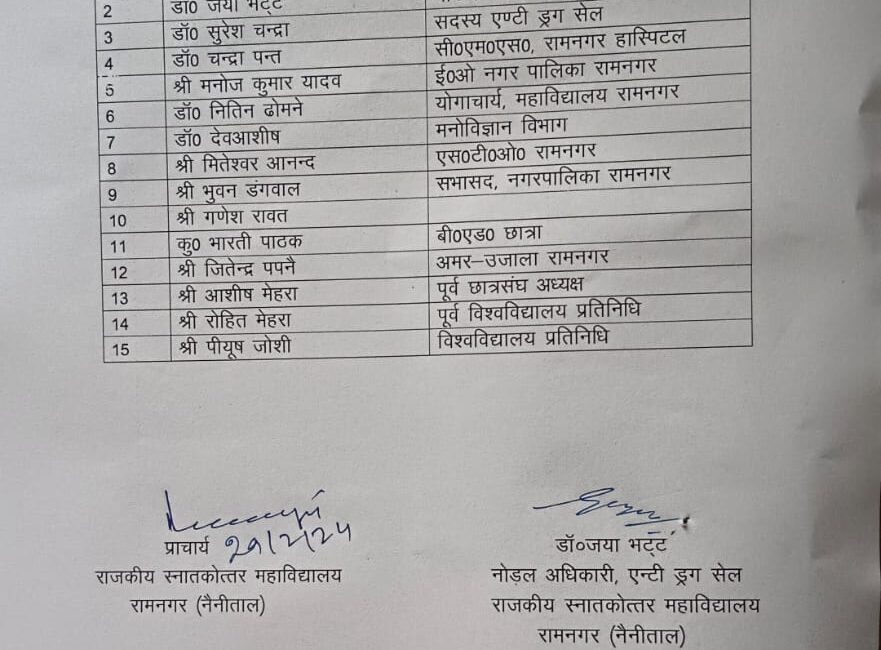 2 डॉ0 जया भट्ट
3 डॉ0 सुरेश चन्द्रा सदस्य एण्टी ड्रग सेल
4 डॉ0 चन्द्रा पन्त सी0एम0एस0, रामनगर हास्पिटल
5 श्री मनोज कुमार यादव ई0ओ नगर पालिका रामनगर
6 डॉ0 नितिन ढोमने योगाचार्य, महाविद्यालय रामनगर
7 डॉ0 देवआशीष मनोविज्ञान विभाग
8 श्री मितेश्वर आनन्द एस0टी0ओ0 रामनगर
9 श्री भुवन डंगवाल सभासद, नगरपालिका रामनगर
10 श्री गणेश रावत
11 कु0 भारती पाठक बी0एड0 छात्रा
12 श्री जितेन्द्र पपनै अमर–उजाला रामनगर
13 श्री आशीष मेहरा पूर्व छात्रसंघ अध्यक्ष
14 श्री रोहित मेहरा पूर्व विश्वविद्यालय प्रतिनिधि
15 श्री पीयूष जोशी विश्वविद्यालय प्रतिनिधि
प्राचार्य 29/2/24
राजकीय स्नातकोत्तर महाविद्यालय
रामनगर (नैनीताल)
डॉ०जया भट्ट
नोड़ल अधिकारी, एन्टी ड्रग सेल
राजकीय स्नातकोत्तर महाविद्यालय
रामनगर (नैनीताल)